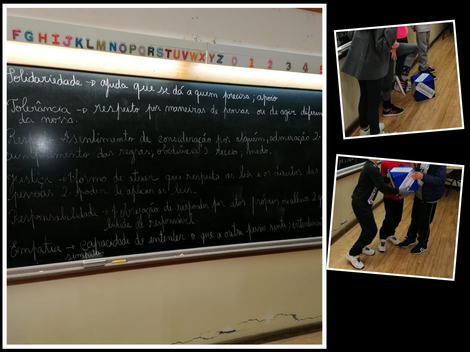 FGHIJKLMNOPQRSTUVWXYZ 0 1 2 3 4 5
Solidariedade → ajuda que se dá a quem precisa; apoio
Tolerância → respeito por maneiras de pensar ou de agir diferentes
da nossa.
sentimento de consideração por alguém; admiração 2.
cumprimento das regras; obediência 3. receio; medo.
Justiça → forma de atuar que respeita as leis e os direitos das
pessoas 2. poder de aplicar as leis.
Responsabilidade → obrigação de responder por atos próprios
Empatia → capacidade de entender o que a outra pessoa sente;
simpatia